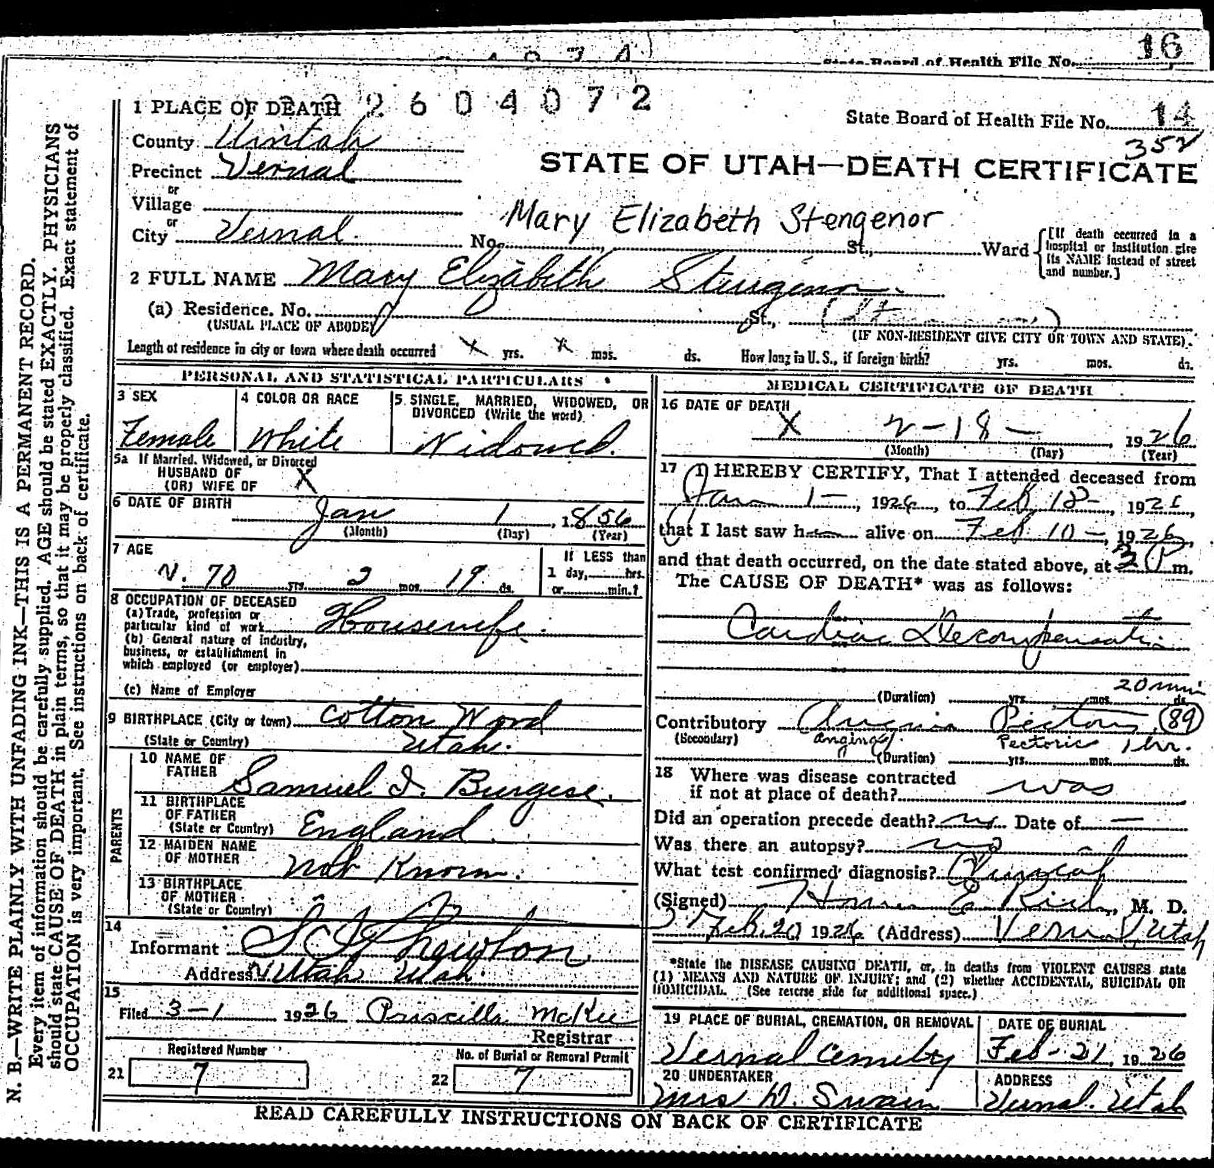 16
State Board of Health File No.
1 PLACE OF DEATH 2604072
State Board of Health File No. 14
352
County Uintah
Precinct Vernal
STATE OF UTAH—DEATH CERTIFICATE
or
Village
or
City Vernal.
Mary Elizabeth Stengenor
No. St., Ward
[If death occurred in a hospital or institution give its NAME instead of street and number.]
2 FULL NAME Mary Elizabeth
(a) Residence. No. St.,
(USUAL PLACE OF ABODE) (IF NON-RESIDENT GIVE CITY OR TOWN AND STATE).
Length of residence in city or town where death occurred X yrs. mos. ds. How long in U. S., if foreign birth? yrs. mos. ds.
PERSONAL AND STATISTICAL PARTICULARS
3 SEX Female
4 COLOR OR RACE White
5 SINGLE, MARRIED, WIDOWED, OR DIVORCED (Write the word) Widowed.
5a If Married, Widowed, or Divorced
HUSBAND OF
(OR) WIFE OF X
6 DATE OF BIRTH Jan 1, 1856
(Month) (Day) (Year)
7 AGE 70 yrs. 2 mos. 19 ds.
If LESS than
1 day, hrs.
or min.?
8 OCCUPATION OF DECEASED
(a) Trade, profession or
particular kind of work Housewife.
(b) General nature of industry,
business, or establishment in
which employed (or employer)
(c) Name of Employer
9 BIRTHPLACE (City or town) Cotton Word
(State or Country) Utah.
PARENTS
10 NAME OF
FATHER Samuel I. Burgess.
11 BIRTHPLACE
OF FATHER
(State or Country) England
12 MAIDEN NAME
OF MOTHER Not Known.
13 BIRTHPLACE
OF MOTHER
(State or Country)
14
Informant
Address Utah.
15
Filed 3-1 1926 Priscilla McKee
Registrar
Registered Number
21 7
No. of Burial or Removal Permit
22 7
MEDICAL CERTIFICATE OF DEATH
16 DATE OF DEATH
X 2-18-, 1926
(Month) (Day) (Year)
17 I HEREBY CERTIFY, That I attended deceased from
Jan 1-, 1926, to Feb 18-, 1926,
that I last saw h alive on Feb. 10-, 1926,
and that death occurred, on the date stated above, at P m.
The CAUSE OF DEATH* was as follows:
Cardiac Decompensation
20 min
(Duration) yrs. mos. ds.
Contributory Angina Pectoris (89)
(Secondary) Angina Pectoris 1 hr.
(Duration) yrs. mos. ds.
18 Where was disease contracted
if not at place of death? was
Did an operation precede death? no Date of —
Was there an autopsy? no
What test confirmed diagnosis?
(Signed) Rich, M. D.
Feb. 20 1926 (Address) Vernal, Utah
*State the DISEASE CAUSING DEATH, or, in deaths from VIOLENT CAUSES state
(1) MEANS AND NATURE OF INJURY; and (2) whether ACCIDENTAL, SUICIDAL OR
HOMICIDAL. (See reverse side for additional space.)
19 PLACE OF BURIAL, CREMATION, OR REMOVAL DATE OF BURIAL
Vernal Cemetery Feb-21, 1926
20 UNDERTAKER ADDRESS
Mrs D. Swain Vernal. Utah
READ CAREFULLY INSTRUCTIONS ON BACK OF CERTIFICATE
N. B.—WRITE PLAINLY WITH UNFADING INK—THIS IS A PERMANENT RECORD.
Every item of information should be carefully supplied. AGE should be stated EXACTLY. PHYSICIANS
should state CAUSE OF DEATH in plain terms, so that it may be properly classified. Exact statement of
OCCUPATION is very important. See instructions on back of certificate.